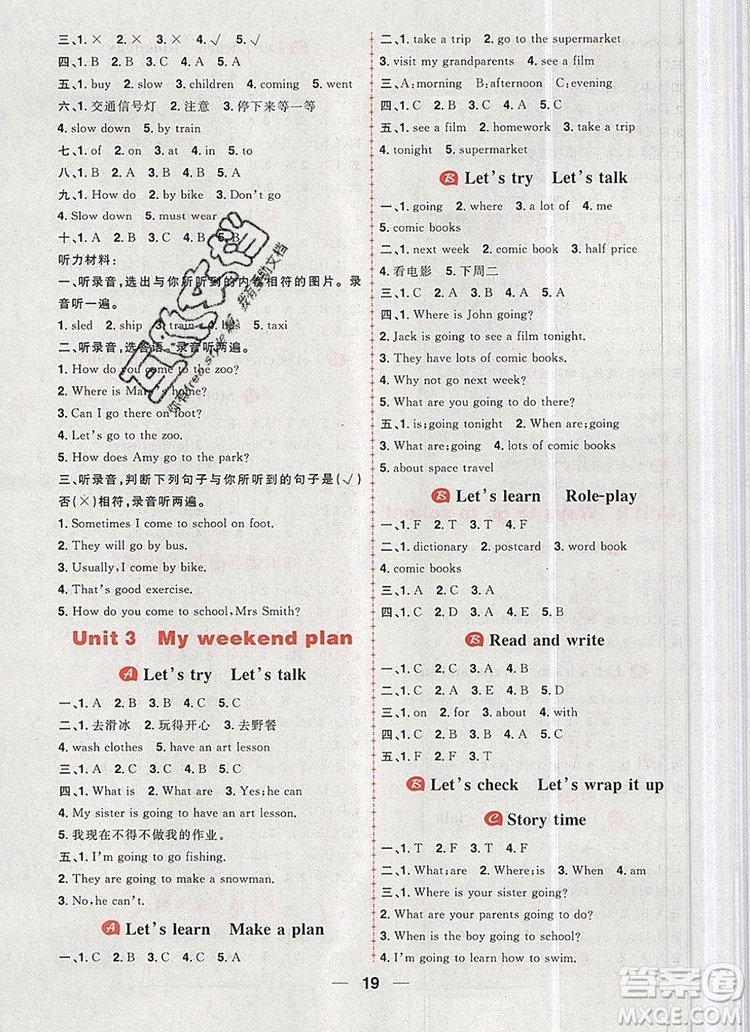 三、1. × 2. × 3. × 4. √ 5. √
四、1. C 2. C 3. C 4. A
五、1. buy 2. slow 3. children 4. coming 5. went
六、1. 交通信号灯 2. 注意 3. 停下来等一等
4. slow down 5. by train
七、1. of 2. on 3. at 4. in 5. to
八、1. A 2. B 3. B 4. C 5. B
九、1. How do 2. by bike 3. Don't go
4. Slow down 5. must wear
十、1. A 2. C 3. A 4. B 5. B
听力材料:
一、听录音,选出与你所听到的内容相符的图片。录
音听一遍。
1. sled 2. ship 3. train 4. bus 5. taxi
二、听录音,选答语。录音听两遍。
1. How do you come to the zoo?
2. Where is Mary's home?
3. Can I go there on foot?
4. Let's go to the zoo.
5. How does Amy go to the park?
三、听录音,判断下列句子与你所听到的句子是(√)
否(×)相符,录音听两遍。
1. Sometimes I come to school on foot.
2. They will go by bus.
3. Usually, I come by bike.
4. That's good exercise.
5. How do you come to school, Mrs Smith?
Unit 3 My weekend plan
A Let's try Let's talk
一、1. A 2. B 3. C 4. C 5. A
二、1. 去滑冰 2. 玩得开心 3. 去野餐
4. wash clothes 5. have an art lesson
三、1. C 2. A 3. C 4. B 5. A
四、1. What is 2. What are 3. Yes; he can
4. My sister is going to have an art lesson.
5. 我现在不得不做我的作业。
五、1. I'm going to go fishing.
2. They are going to make a snowman.
3. No; he can't.
A Let's learn Make a plan
一、1. C 2. A 3. B 4. C
二、1. take a trip 2. go to the supermarket
3. visit my grandparents 4. see a film
三、A: morning B: afternoon C: evening
四、1. C 2. B 3. C 4. A
五、1. see a film 2. homework 3. take a trip
4. tonight 5. supermarket
B Let's try Let's talk
一、1. going 2. where 3. a lot of 4. me
5. comic books
二、1. next week 2. comic book 3. half price
4. 看电影 5. 下周二
三、1. C 2. B 3. A 4. C 5. B
四、1. Where is John going?
2. Jack is going to see a film tonight.
3. I'm going to buy lots of comic books.
4. Why not go right now?
5. What are you going to do there?
五、1. is; going tonight 2. When are; going
3. What are; going 4. lots of comic books
5. about space travel
B Let's learn Role-play
一、1. F 2. T 3. F 4. T
二、1. dictionary 2. postcard 3. word book
4. comic books
三、1. C 2. B 3. C 4. A 5. A
四、1. C 2. D 3. B 4. E 5. A
B Read and write
一、1. C 2. C 3. A 4. B
二、1. C 2. A 3. B 4. E 5. D
三、1. on 2. for 3. about 4. with
五、1. F 2. F 3. T
B Let's check Let's wrap it up
C Story time
一、1. F 2. F 3. T 4. F
二、1. What; are 2. Where; is 3. When 4. am
三、1. Where is your sister going?
2. What are your parents going to do?
3. When is the boy going to school?
4. I'm going to learn how to swim.
19
答案圈
MXQE.COM